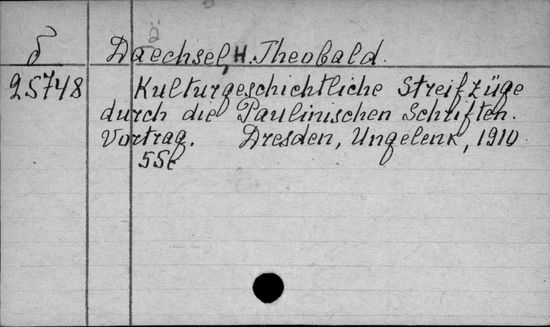 ä
δ Daechsel, H. Theobald.
25748 Kulturgeschichtliche Streifzüge
durch die Paulinischen Schriften.
Vortrag. Dresden, Ungelenk, 1910